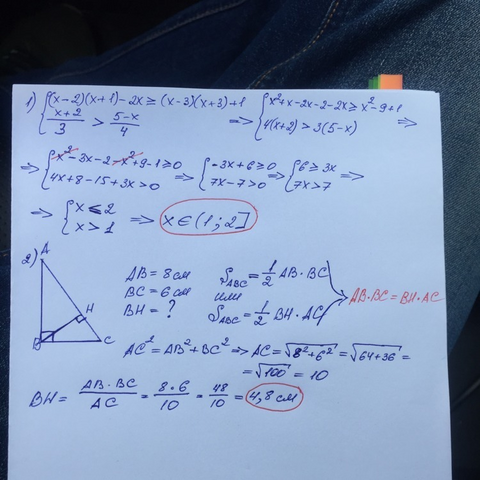 1) { (x-2)(x+1)-2x ≥ (x-3)(x+3)+1 ⇒ { x²+x-2x-2-2x ≥ x²-9+1
(x+2)/3 > (5-x)/4 4(x+2) > 3(5-x) ⇒
⇒ { x²-3x-2-x²+9-1 ≥ 0 ⇒ { -3x+6 ≥ 0 ⇒ { 6 ≥ 3x ⇒
4x+8-15+3x > 0 7x-7 > 0 7x > 7
⇒ { x ≤ 2 ⇒ x ∈ (1; 2]
x > 1
2) A
B
H
C
AB = 8 см
BC = 6 см
BH = ?
S_ABC = 1/2 AB·BC
или
S_ABC = 1/2 BH·AC
AB·BC = BH·AC
AC² = AB² + BC² ⇒ AC = √(8²+6²) = √(64+36) =
= √100 = 10
BH = (AB·BC)/AC = (8·6)/10 = 48/10 = 4,8 см